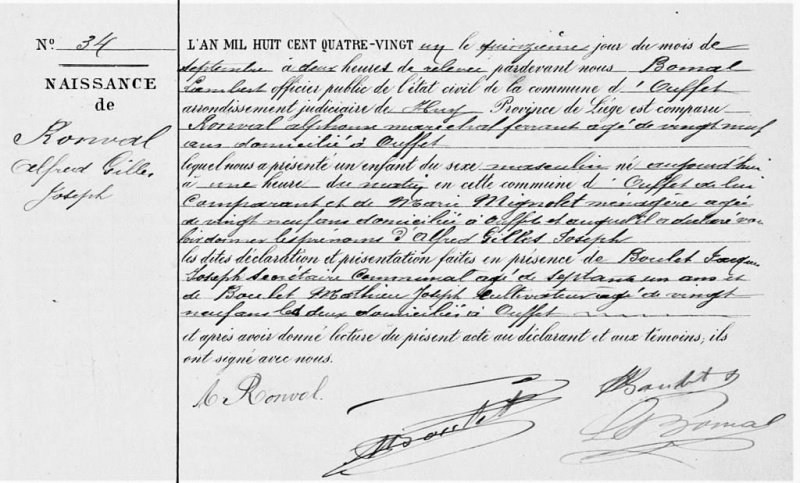 N.º 34
NAISSANCE
de
Ronval
Alfred Gilles
Joseph
L'AN MIL HUIT CENT QUATRE-VINGT un le quinzième jour du mois de
septembre à deux heures de relevée pardevant nous Bomal
Lambert officier public de l'état civil de la commune d'Ouffet
arrondissement judiciaire de Huy Province de Liége est comparu
Ronval alphonse maréchal ferrant agé de vingt neuf
ans domicilié à Ouffet
lequel nous a présenté un enfant du sexe masculin né aujourd'hui
à une heure du matin en cette commune d'Ouffet de lui
Comparant et de Marie Mignolet ménagère agée
de vingt neuf ans domiciliée à Ouffet et auquel il a déclaré vou
loir donner les prénoms d'Alfred Gilles Joseph
les dites déclaration et présentation faites en présence de Boulet Jacques
Joseph Secrétaire Communal agé de septante un ans et
de Boulet Mathieu Joseph Cultivateur agé de vingt
neuf ans les deux domiciliés à Ouffet
et après avoir donné lecture du présent acte au déclarant et aux témoins, ils
ont signé avec nous.
A Ronval.
Boulet
Boulet
L Bomal